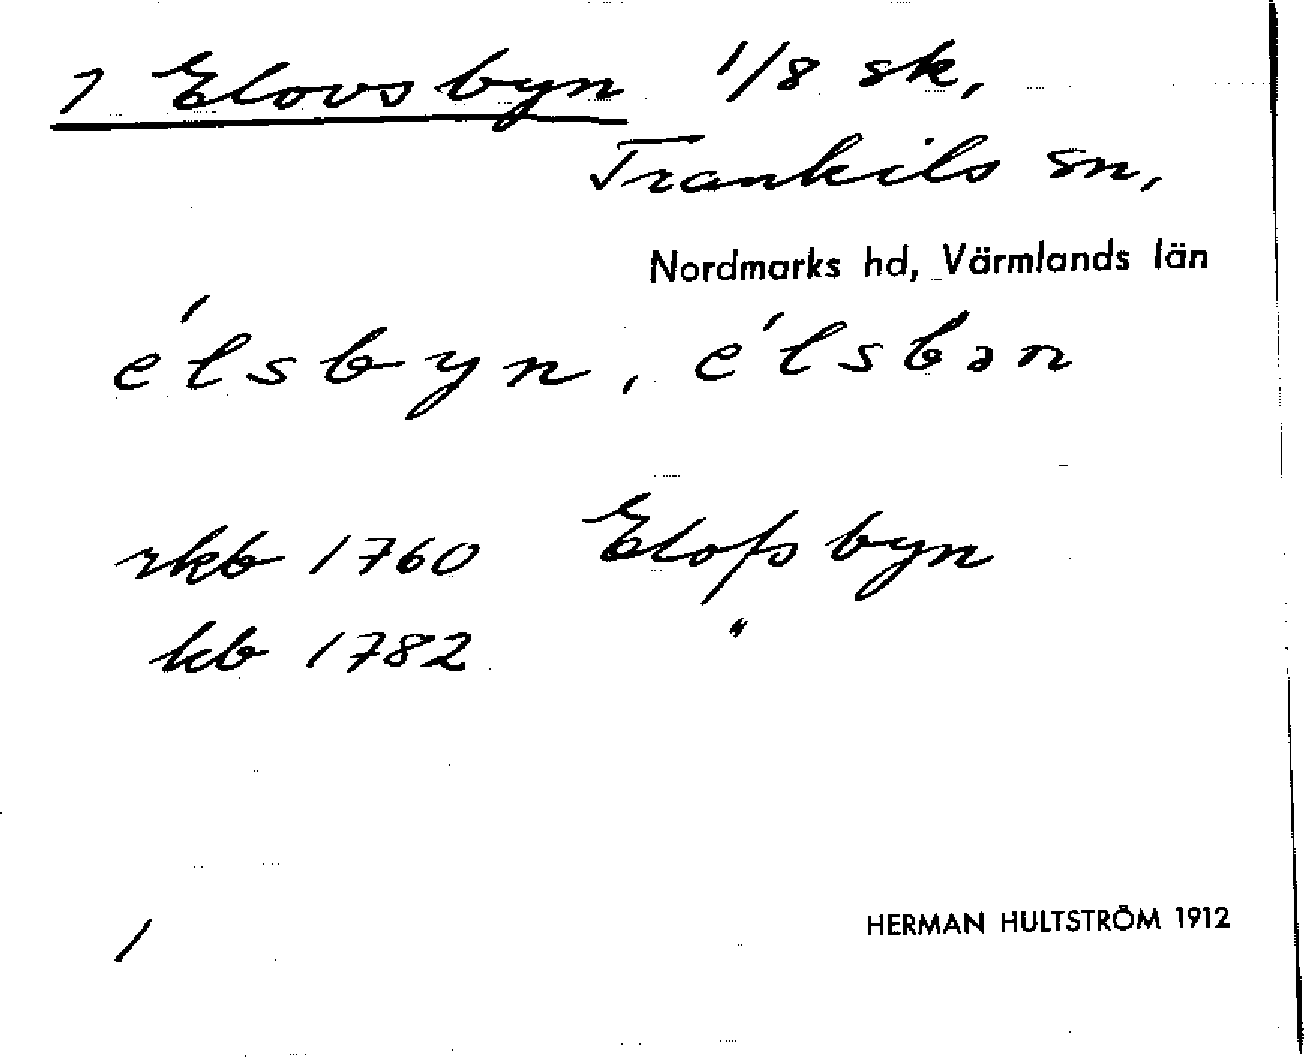 1 Elovsbyn 1/8 sk,
Trankils sn,
Nordmarks hd, Värmlands län
e´lsbyn, e´lsbən
rkb 1760 Elofsbyn
kb 1782 "
1
HERMAN HULTSTRÖM 1912